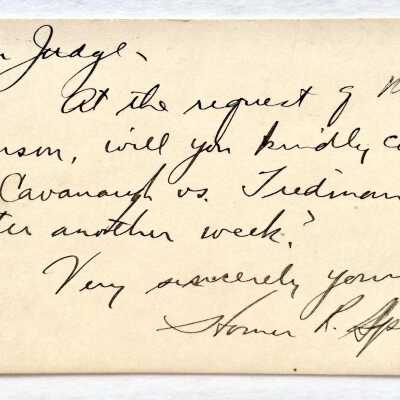 r Judge-
At the request of M
nson, will you kindly co
Cavanaugh vs. Tredman
ter another week?
Very sincerely your
Homer R. Sp